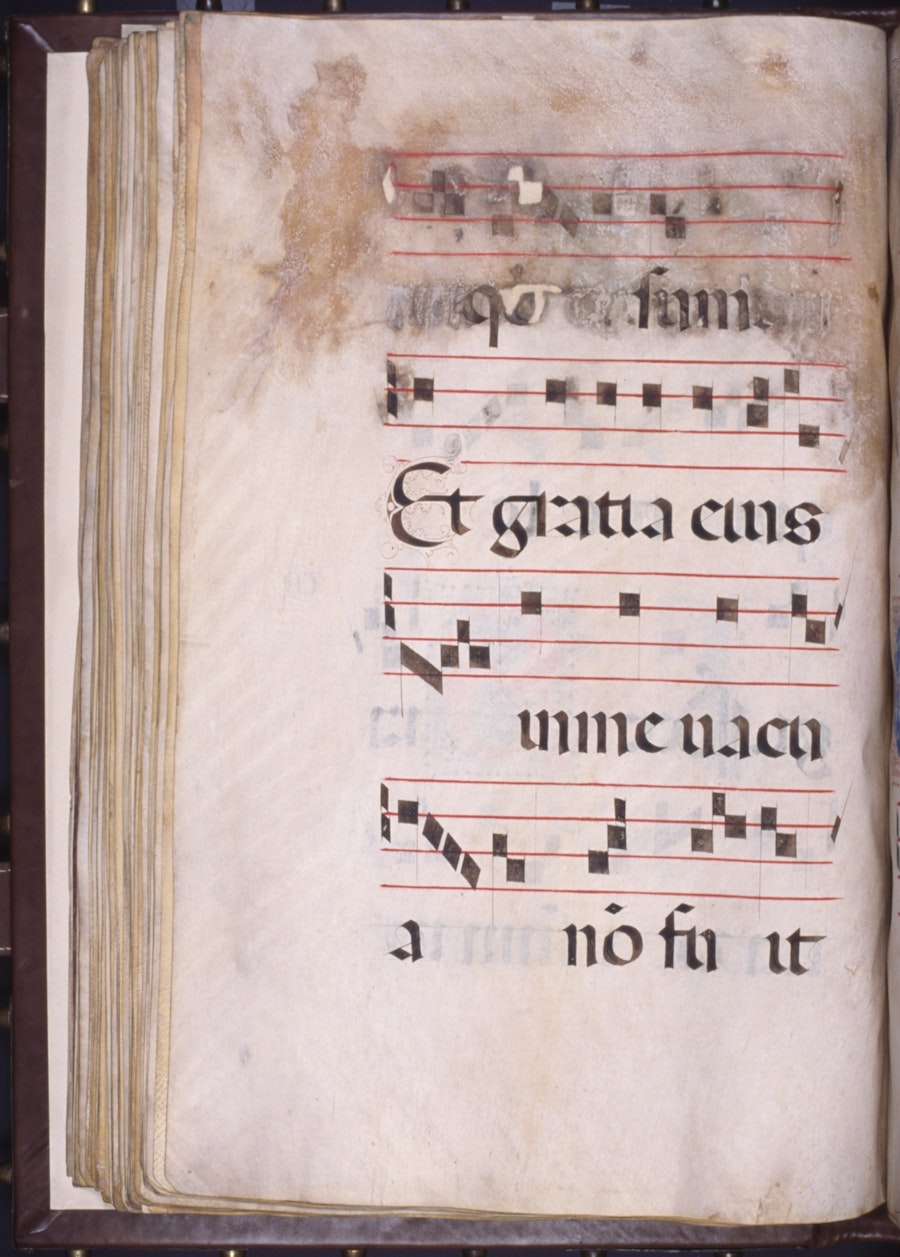 qď sum
Et gratia eius
in me uacu
a nō fu it